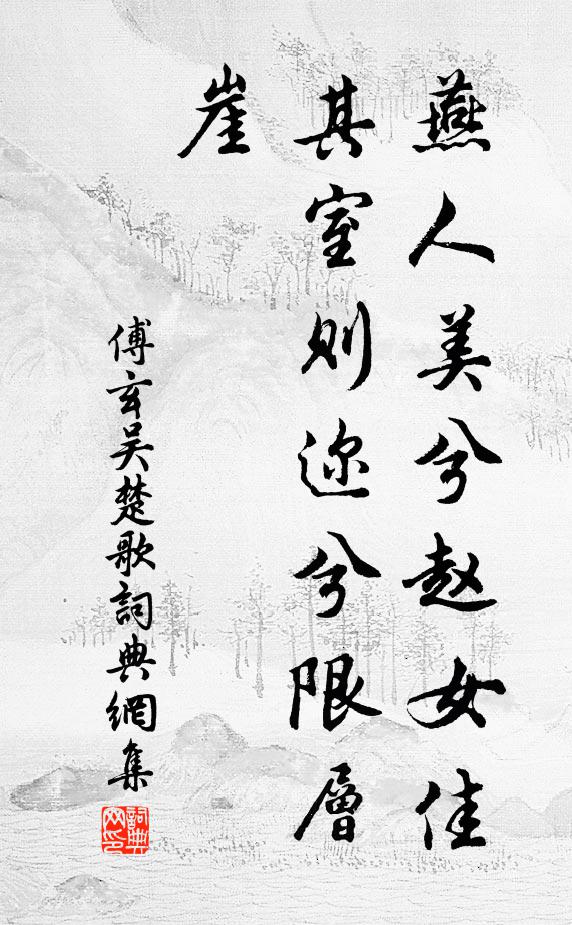 燕人美兮赵女佳
其室则迩兮限層
崖
傅玄吴楚歌詞典網集
詞典网印